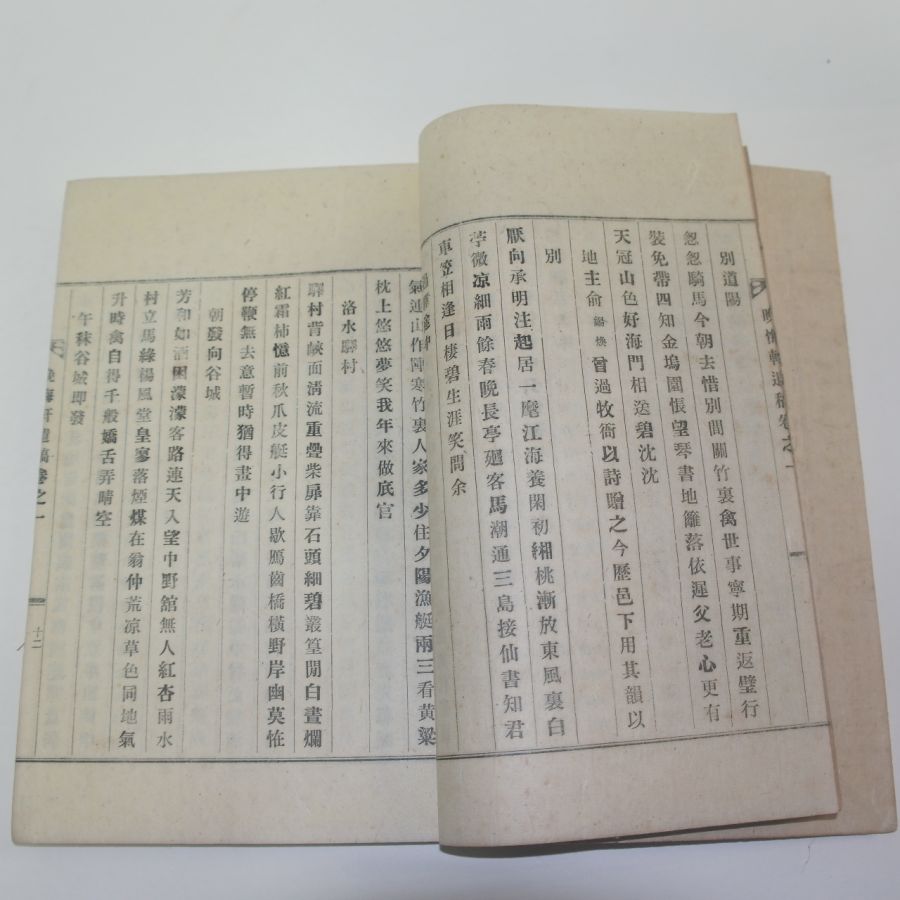 晚悔軒遺稿卷之一
別道陽
怱怱騎馬今朝去惜別間關竹裏禽世事寧期重返璧行
裝免帶四知金塢園悵望琴書地籬落依遲父老心更有
天冠山色好海門相送碧沈沈
地主俞錫煥曾過牧衙以詩贈之今歷邑下用其韻以
別
厭向承明注起居一麾江海養閑初緗桃漸放東風裏白
苧微凉細雨餘春晚長亭廻客馬潮通三島接仙書知君
車笠相逢日棲碧生涯笑問余
氣連山作陣寒竹裏人家多少住夕陽漁艇兩三看黃粱
枕上悠悠夢笑我年來做底官
洛水驛村
驛村背峽面淸流重疊柴扉靠石頭細碧叢篁閒白晝爛
紅霜柿憶前秋爪皮艇小行人歇鴈齒橋橫野岸幽莫恠
停鞭無去意暫時猶得畫中遊
朝發向谷城
芳和如酒困濛濛客路連天入望中野舘無人紅杏雨水
村立馬綠楊風堂皇寥落煙煤在翁仲荒凉草色同地氣
升時禽自得千般嬌舌弄晴空
午秣谷城即發
晚悔軒遺稿卷之一
十二